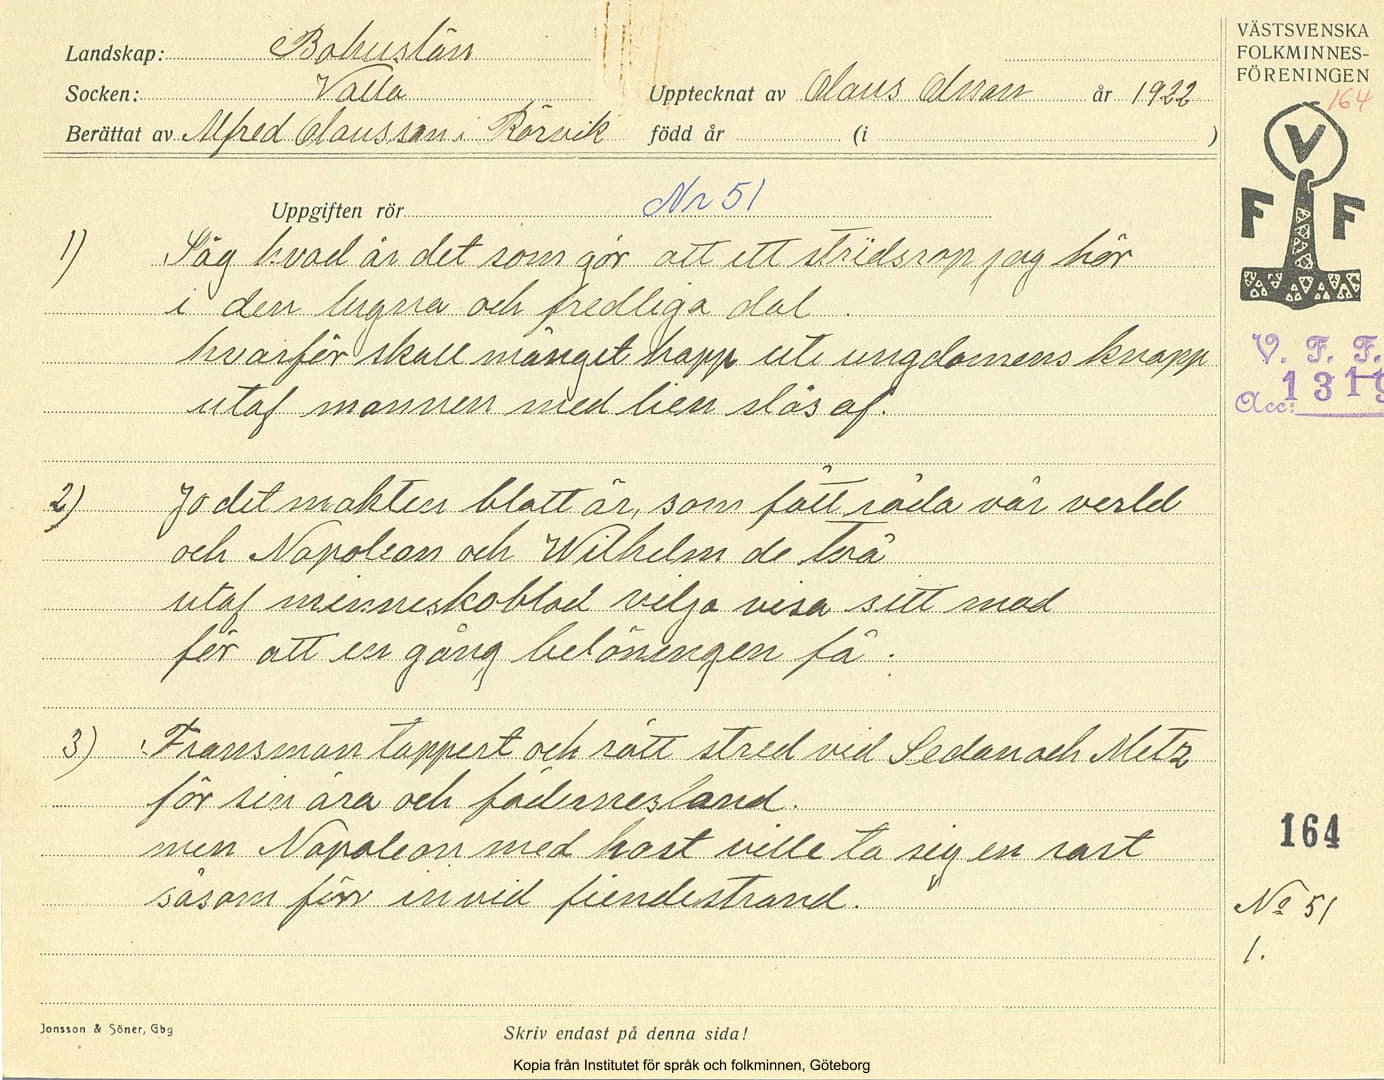 Landskap: Bohuslän
Socken: Valla
Upptecknat av Olaus Olsson år 1922
Berättat av Alfred Olausson i Rörvik född år (i )
VÄSTSVENSKA
FOLKMINNES-
FÖRENINGEN
164
V
F F
V. F. F.
Acc: 1319
Uppgiften rör Nr 51
1) Säg hvad är det som gör att ett stridsrop jag hör
i den lugna och fredliga dal.
hvarför skall månget hopp uti ungdomens knopp
utaf mannen med lien slås af.
2) Jo det makten blott är, som fått råda vår verld
och Napoleon och Wilhelm de två
utaf menneskoblod vilja visa sitt mod
för att en gång belöningen få.
3) Fransman tappert och rätt stred vid Sedan och Metz
för sin ära och fädernesland.
men Napoleon med hast ville ta sig en rast
såsom förr invid fiendestrand.
164
No 51
1.
Jonsson & Söner, Gbg
Skriv endast på denna sida!
Kopia från Institutet för språk och folkminnen, Göteborg